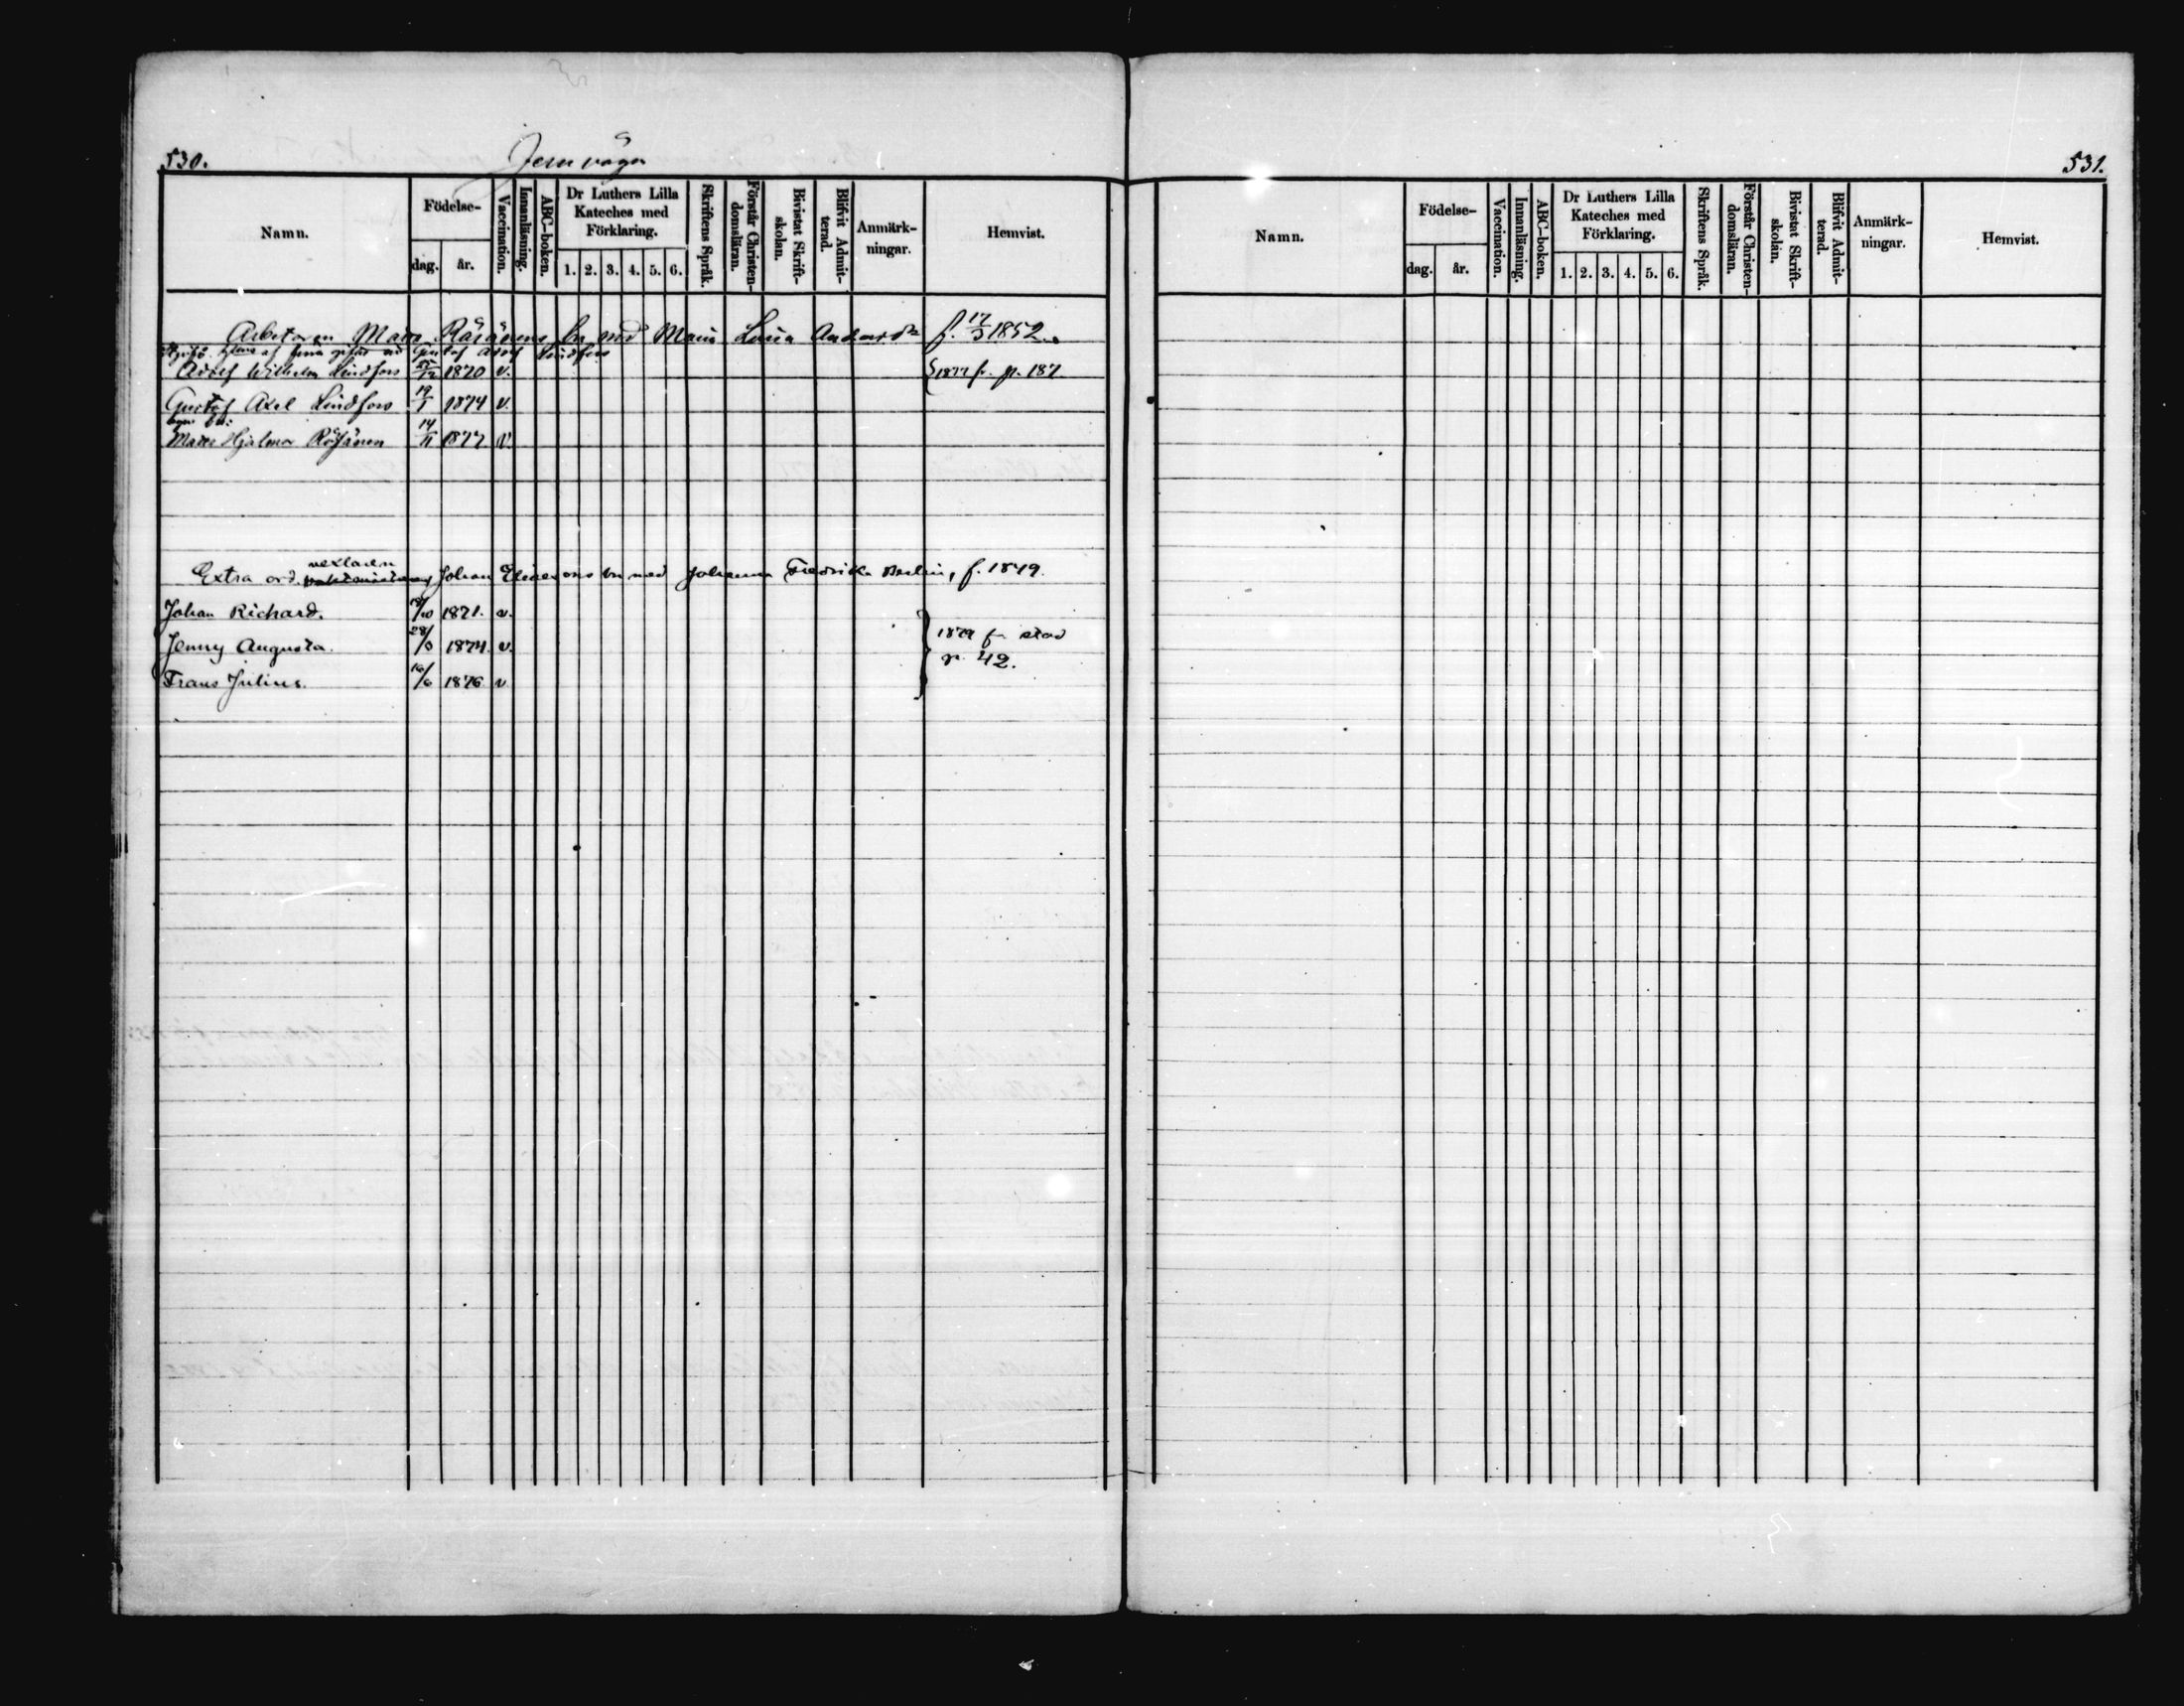 530.
Jernvägs
Namn.
Födelse-
dag.
år.
Vaccination.
Innanläsning.
ABC-boken.
Dr Luthers Lilla
Kateches med
Förklaring.
1. 2. 3. 4. 5. 6.
Skriftens Språk.
Förstår Christen-
domsläran.
Bivistat Skrift-
skolan.
Blifvit Admit-
terad.
Anmärk-
ningar.
Hemvist.
Arbetaren Matts Räsänens bn med Maria Lovisa f. 17/3 1852.
Adolf Wilhelm Lindfors 1870 v. 1877 fr. p. 187
Gustaf Axel Lindfors 19/1 1874 v.
Matts Hjalmar Räsänen 14/11 1877 v.
vexlaren
Extra ord. Johan bn med Johanna Fredrika f. 1849.
Johan Richard. 1871. v.
Jenny Augusta. 1874. v. 1879 fr stad
p. 42.
Frans Julius. 1876. v
531.
Namn.
Födelse-
dag.
år.
Vaccination.
Innanläsning.
ABC-boken.
Dr Luthers Lilla
Kateches med
Förklaring.
1. 2. 3. 4. 5. 6.
Skriftens Språk.
Förstår Christen-
domsläran.
Bivistat Skrift-
skolan.
Blifvit Admit-
terad.
Anmärk-
ningar.
Hemvist.